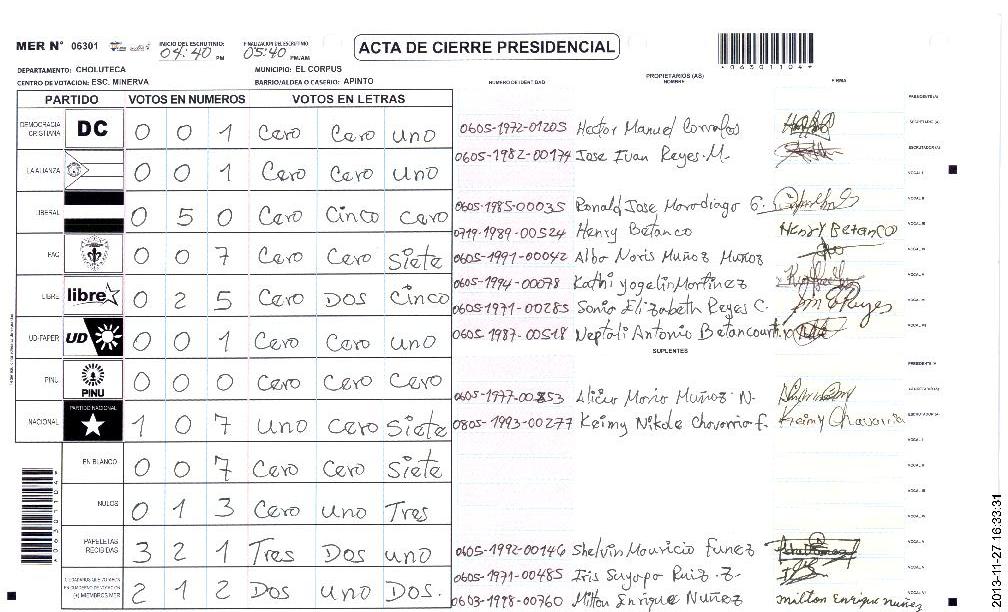 MER N° 06301 INICIO DEL ESCRUTINIO: 04:40 PM FINALIZACION DEL ESCRUTINIO 05:40 PM/AM
ACTA DE CIERRE PRESIDENCIAL
* 0 6 3 0 1 1 0 4 *
DEPARTAMENTO: CHOLUTECA MUNICIPIO: EL CORPUS
CENTRO DE VOTACION: ESC. MINERVA BARRIO/ALDEA O CASERIO: APINTO
PARTIDO VOTOS EN NUMEROS VOTOS EN LETRAS
DEMOCRACIA CRISTIANA DC 0 0 1 Cero Cero uno
LA ALIANZA 0 0 1 Cero Cero uno
LIBERAL 0 5 0 Cero Cinco cero
PAC 0 0 7 Cero Cero Siete
LIBRE libre 0 2 5 Cero DOS Cinco
UD-FAPER UD 0 0 1 Cero Cero uno
PINU PINU 0 0 0 Cero Cero Cero
NACIONAL PARTIDO NACIONAL 1 0 7 uno Cero Siete
EN BLANCO 0 0 7 Cero Cero Siete
NULOS 0 1 3 Cero uno Tres
PAPELETAS RECIBIDAS 3 2 1 Tres Dos uno
(+) MIEMBROS MER 2 1 2 Dos uno Dos.
NUMERO DE IDENTIDAD PROPIETARIOS (AS) NOMBRE FIRMA
0605-1972-01205 Hector Manuel
0605-1982-00174 Jose Ivan Reyes. M.
0605-1985-00035 Ronald Jose
0719-1989-00524 Henry Betanco Henry Betanco
0605-1991-00042 Alba Noris Muñoz Muñoz
0605-1994-00078 Kathi yogelin Martinez
0605-1971-00285 Sonia Elizabeth Reyes C.
0605-1987-00518 Neptali Antonio
SUPLENTES
0605-1977-00853 Maria Muñoz N.
0805-1993-00277 Keimy Nikole Chavarria F. Keimy Chavarria
0605-1992-00146 Shelvin Mauricio Funez
0605-1971-00485 Iris Ruiz. Z.
0603-1998-00760 Milton Enrique Nuñez milton Enrique nuñez
2013-11-27 16:33:31